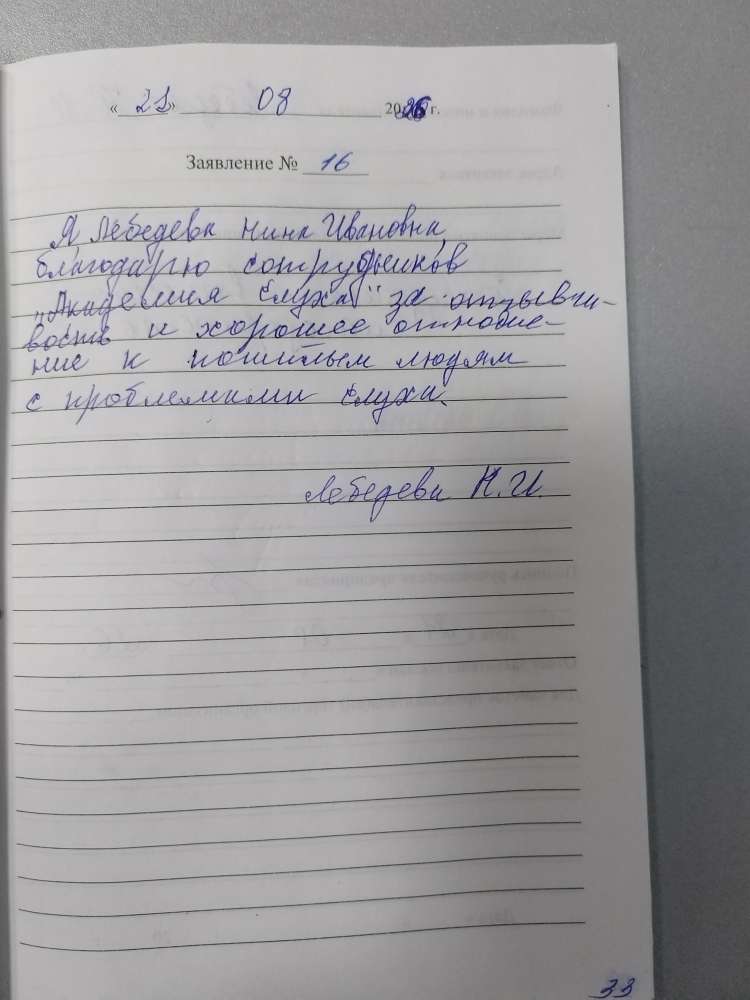 «21» 08 2026 г.
Заявление № 16
Я Лебедева Нина Ивановна,
благодарю сотрудников
"Академия Слуха" за отзывчи-
вость и хорошее отноше-
ние к пожилым людям
с проблемами слуха.
Лебедева Н.И.
33